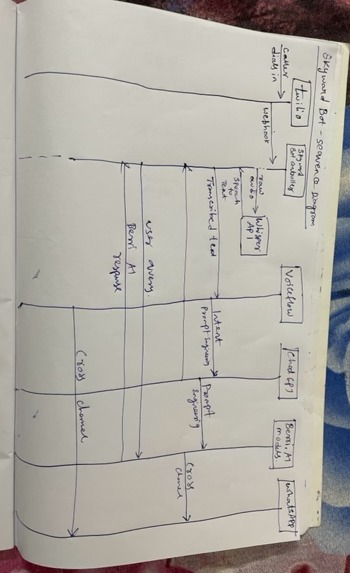 Skyward Bot - sequence Diagram
caller
dials in
twilio
webhook
Bot controller
raw
audio
Whisper
API
speech
to
text
Transcribed text
Voiceflow
Intent
Prompt Engineering
Chat GPT
Prompt
Engineering
Berri.AI
models
whatsApp
cross
channel
user query
Berri AI
response
Cross channel